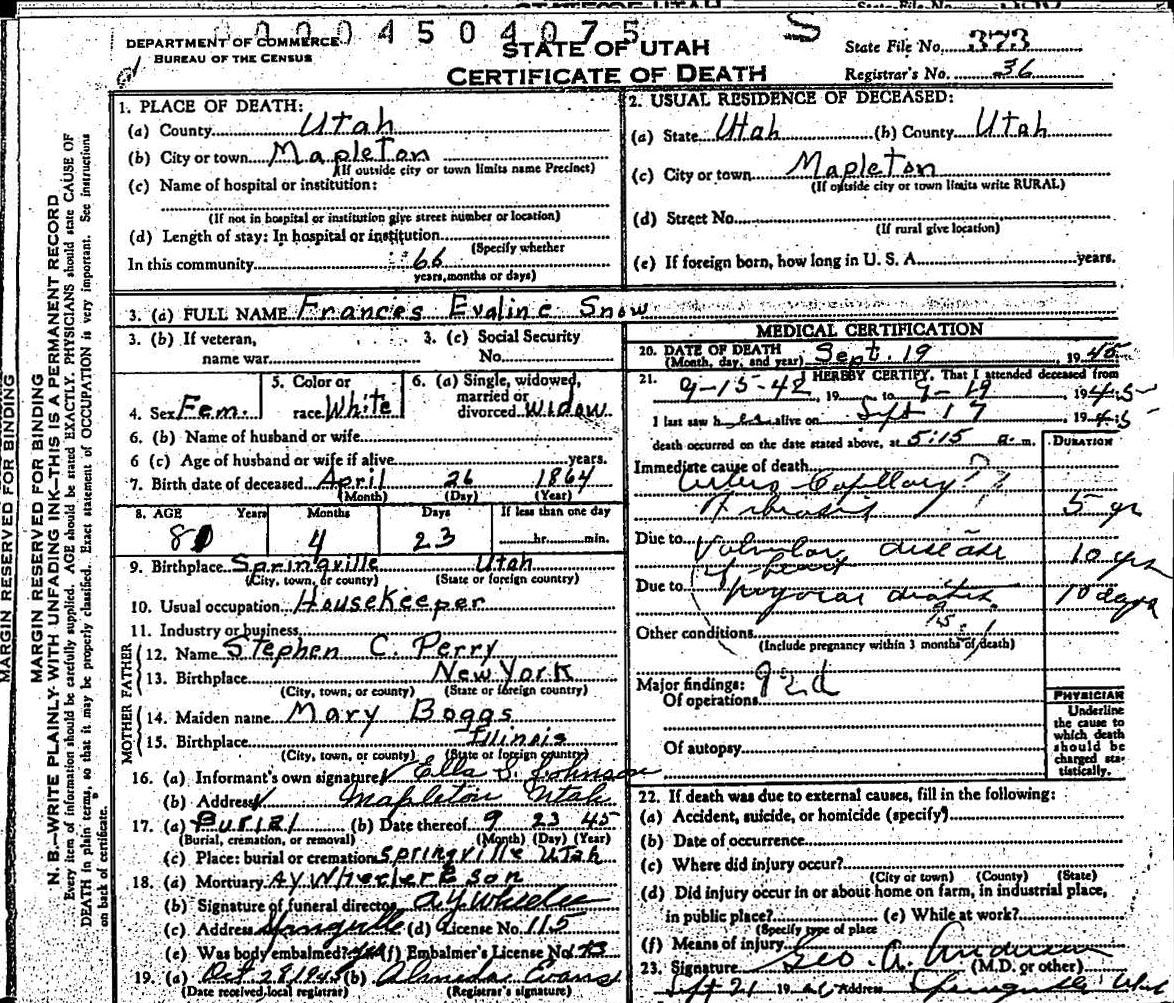 0004504075 S
DEPARTMENT OF COMMERCE
BUREAU OF THE CENSUS
STATE OF UTAH
CERTIFICATE OF DEATH
State File No. 373
Registrar's No. 36
MARGIN RESERVED FOR BINDING
MARGIN RESERVED FOR BINDING
N. B.—WRITE PLAINLY-WITH UNFADING INK-THIS IS A PERMANENT RECORD
Every item of information should be carefully supplied. AGE should be stated EXACTLY. PHYSICIANS should state CAUSE OF
DEATH in plain terms, so that it may be properly classified. Exact statement of OCCUPATION is very important. See instructions
on back of certificate.
1. PLACE OF DEATH:
(a) County Utah
(b) City or town Mapleton
(If outside city or town limits name Precinct)
(c) Name of hospital or institution:
(If not in hospital or institution give street number or location)
(d) Length of stay: In hospital or institution
(Specify whether
In this community 66
years, months or days)
2. USUAL RESIDENCE OF DECEASED:
(a) State Utah (b) County Utah
(c) City or town Mapleton
(If outside city or town limits write RURAL)
(d) Street No.
(If rural give location)
(e) If foreign born, how long in U. S. A. years.
3. (a) FULL NAME Frances Evaline Snow
3. (b) If veteran,
name war
3. (c) Social Security
No.
4. Sex Fem.
5. Color or
race White
6. (a) Single, widowed,
married or
divorced widow
6. (b) Name of husband or wife
6 (c) Age of husband or wife if alive years.
7. Birth date of deceased April 26 1864
(Month) (Day) (Year)
8. AGE Years Months Days If less than one day
81 4 23 hr. min.
9. Birthplace Springville Utah
(City, town, or county) (State or foreign country)
10. Usual occupation Housekeeper
11. Industry or business
FATHER
12. Name Stephen C. Perry
13. Birthplace New York
(City, town, or county) (State or foreign country)
MOTHER
14. Maiden name Mary Boggs
15. Birthplace Illinois
(City, town, or county) (State or foreign country)
16. (a) Informant's own signature Ella S. Johnson
(b) Address Mapleton Utah
17. (a) Burial (b) Date thereof 9 23 45
(Burial, cremation, or removal) (Month) (Day) (Year)
(c) Place: burial or cremation Springville Utah
18. (a) Mortuary A Y Wheeler & son
(b) Signature of funeral director A Y Wheeler
(c) Address (d) License No. 115
(e) Was body embalmed? yes (f) Embalmer's License No.
19. (a) Oct 28 1945 (b) Almeda Evans
(Date received local registrar) (Registrar's signature)
MEDICAL CERTIFICATION
20. DATE OF DEATH
(Month, day, and year) Sept. 19, 1945
21. I HEREBY CERTIFY, That I attended deceased from
9-15-42, 19 to 9-19, 1945
I last saw h alive on Sept 17 1945
death occurred on the date stated above, at 5:15 a. m.
DURATION
Immediate cause of death
Capillary
Fibrosis 5 yr
Due to Valvular disease 10 yrs
of heart
Due to 10 days
Other conditions
(Include pregnancy within 3 months of death)
Major findings: 92d
Of operations
Of autopsy
PHYSICIAN
Underline
the cause to
which death
should be
charged sta-
tistically.
22. If death was due to external causes, fill in the following:
(a) Accident, suicide, or homicide (specify)
(b) Date of occurrence
(c) Where did injury occur?
(City or town) (County) (State)
(d) Did injury occur in or about home on farm, in industrial place,
in public place? (e) While at work?
(Specify type of place
(f) Means of injury
23. Signature Geo. A. Anderson
(M.D. or other)
Sept 21 19 Address Springville Utah